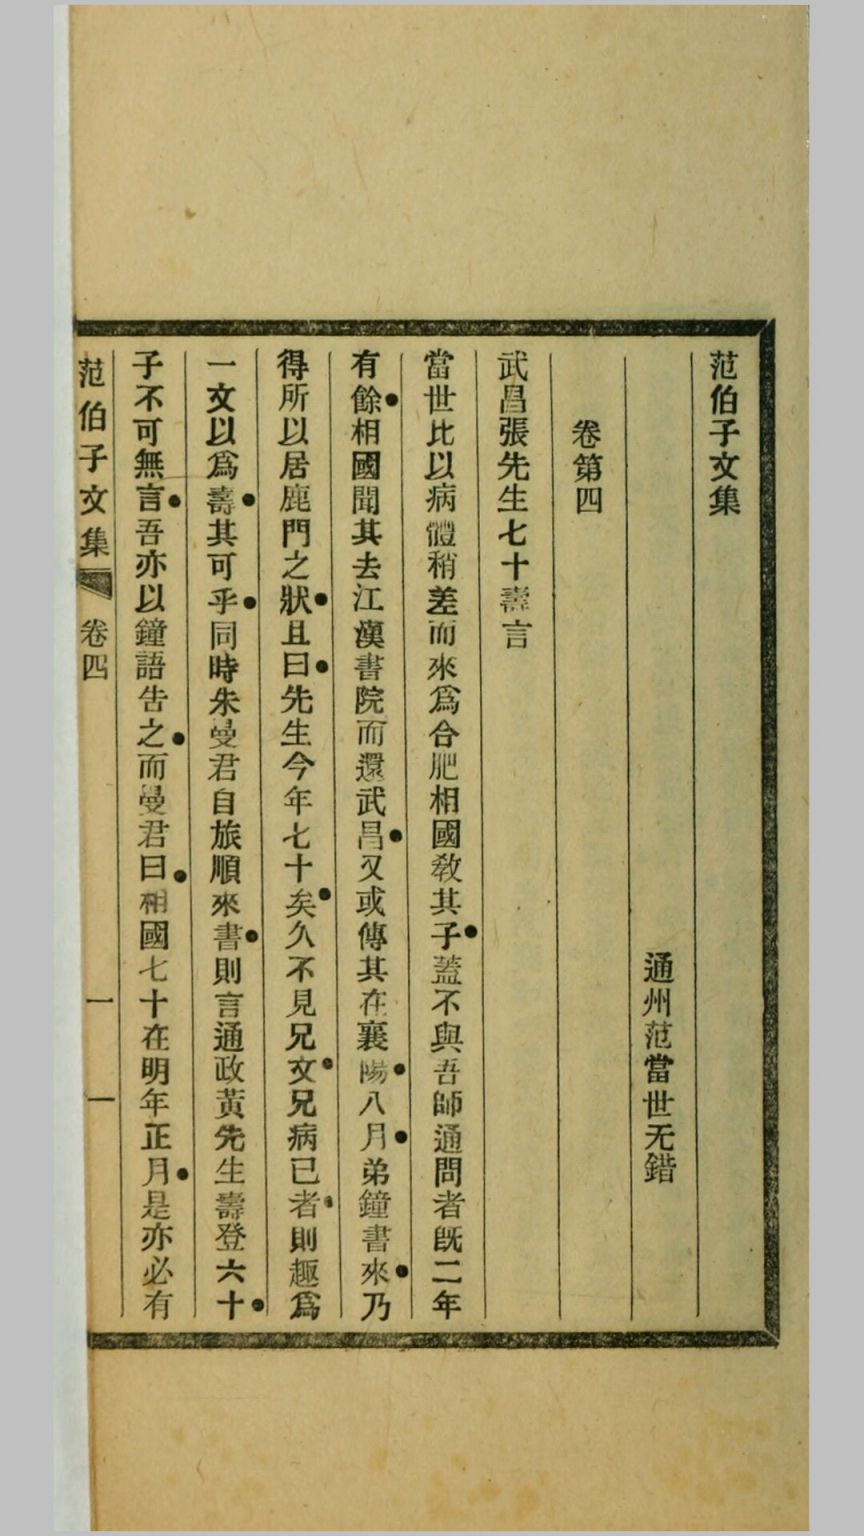 范伯子文集
通州范當世无錯
卷第四
武昌張先生七十壽言
當世比以病體稍差而來爲合肥相國敎其子●蓋不與吾師通問者旣二年
有餘●相國聞其去江漢書院而還武昌●又或傳其在襄陽●八月●弟鐘書來●乃
得所以居鹿門之狀●且曰●先生今年七十矣●久不見兄文●兄病已者●則趣爲
一文以爲壽●其可乎●同時朱曼君自旅順來書●則言通政黃先生壽登六十●
子不可無言●吾亦以鐘語告之●而曼君曰●相國七十在明年正月●是亦必有
范伯子文集 卷四 一 一